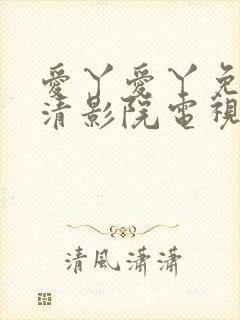 愛丫愛丫免
清影院電視
清風瀟瀟